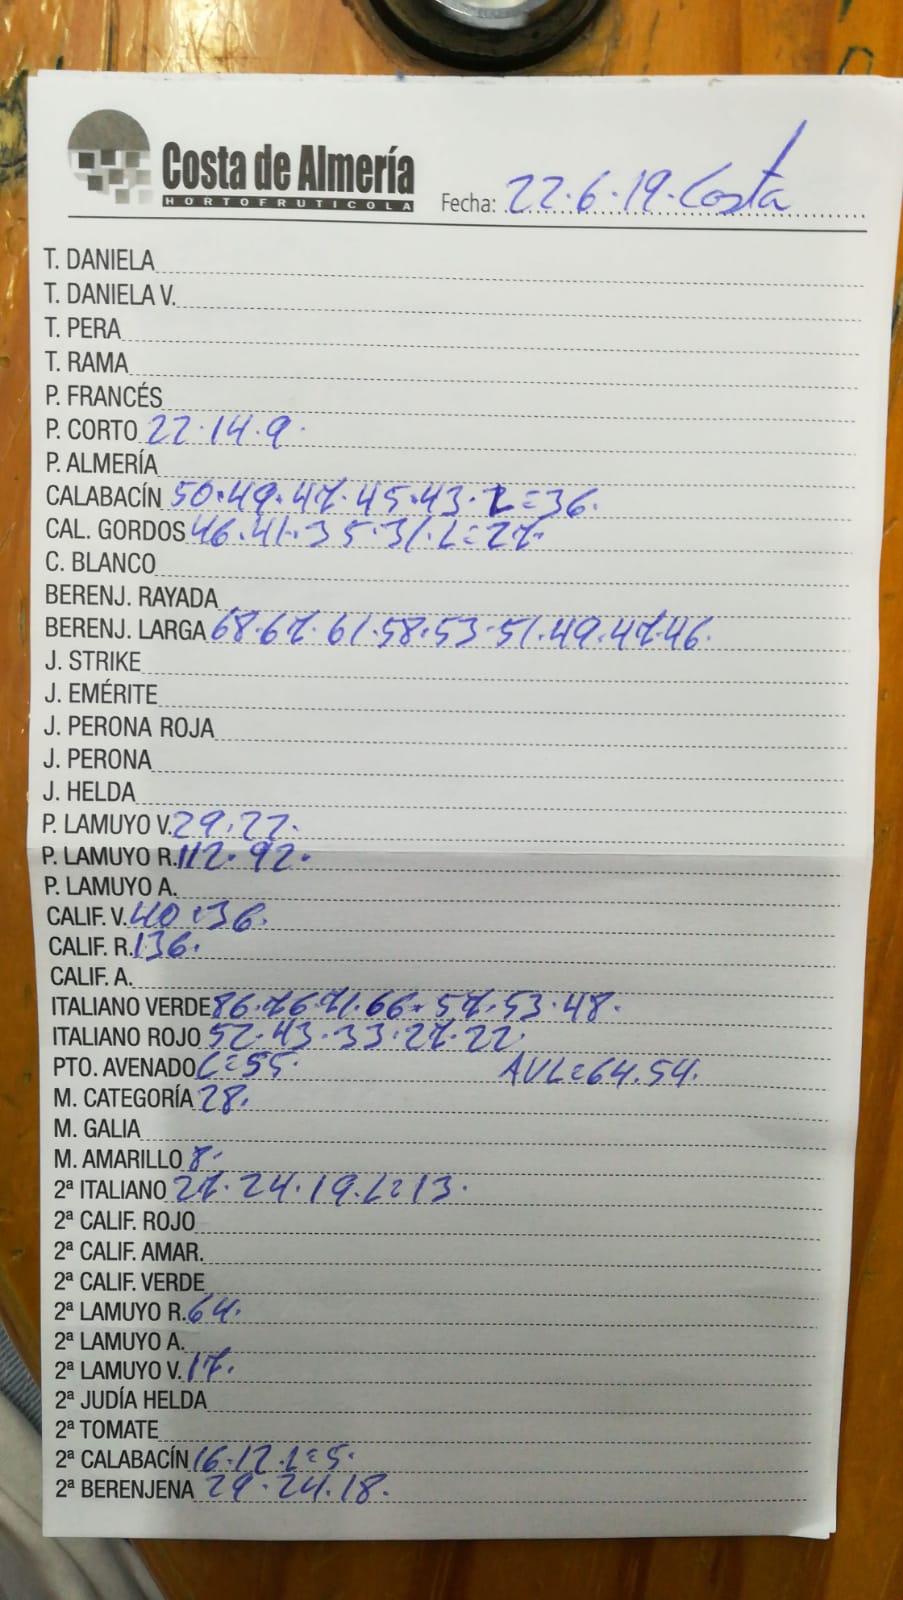 Costa de Almería
HORTOFRUTICOLA
Fecha: 22.6.19. Costa
T. DANIELA
T. DANIELA V.
T. PERA
T. RAMA
P. FRANCÉS
P. CORTO 22.14.9.
P. ALMERÍA
CALABACÍN 50.49.47.45.43.L=36.
CAL. GORDOS 46.41.35.31.L=27.
C. BLANCO
BERENJ. RAYADA
BERENJ. LARGA 68.67.61.58.53.51.49.47.46.
J. STRIKE
J. EMÉRITE
J. PERONA ROJA
J. PERONA
J. HELDA
P. LAMUYO V. 29.22.
P. LAMUYO R. 112.92.
P. LAMUYO A.
CALIF. V. 40.36.
CALIF. R. 136.
CALIF. A.
ITALIANO VERDE 86.76.71.66.57.53.48.
ITALIANO ROJO 52.43.33.27.22.
PTO. AVENADO L=55. AVL=64.54.
M. CATEGORÍA 28.
M. GALIA
M. AMARILLO 8.
2ª ITALIANO 27.24.19.L=13.
2ª CALIF. ROJO
2ª CALIF. AMAR.
2ª CALIF. VERDE
2ª LAMUYO R. 64.
2ª LAMUYO A.
2ª LAMUYO V. 17.
2ª JUDÍA HELDA
2ª TOMATE
2ª CALABACÍN 16.12.L=5.
2ª BERENJENA 29.24.18.